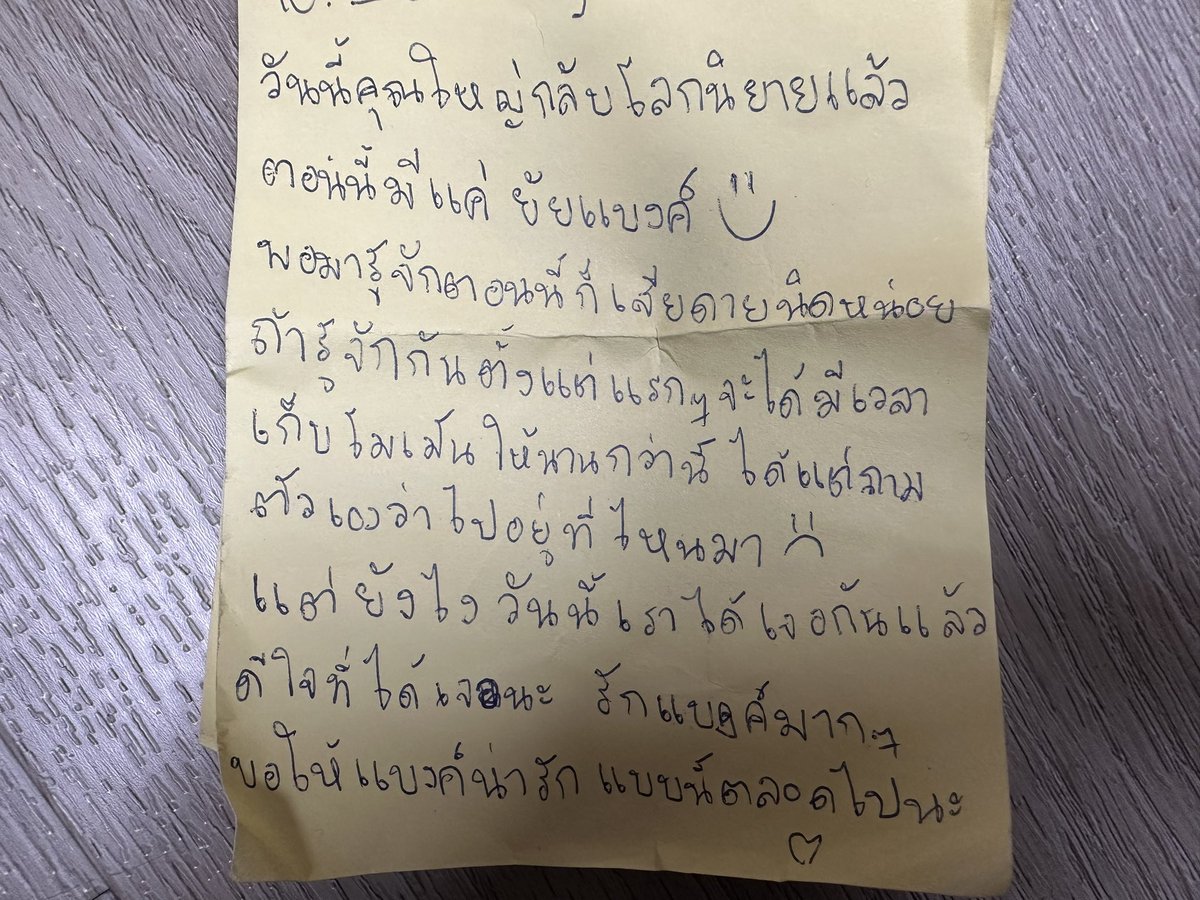 วันนี้คุณใหญ่กลับโลกนิยายแล้ว
ตอนนี้มีแค่ ยัยแบงค์
พอมารู้จักตอนนี้ก็เสียดายนิดหน่อย
ถ้ารู้จักกันตั้งแต่แรกๆจะได้มีเวลา
เก็บโมเม้นให้นานกว่านี้ ได้แต่ถาม
ตัวเองว่าไปอยู่ที่ไหนมา
แต่ ยังไง วันนี้ เราได้เจอกันแล้ว
ดีใจที่ได้เจอนะ รักแบงค์มากๆ
ขอให้แบงค์น่ารัก แบบนี้ตลอดไปนะ